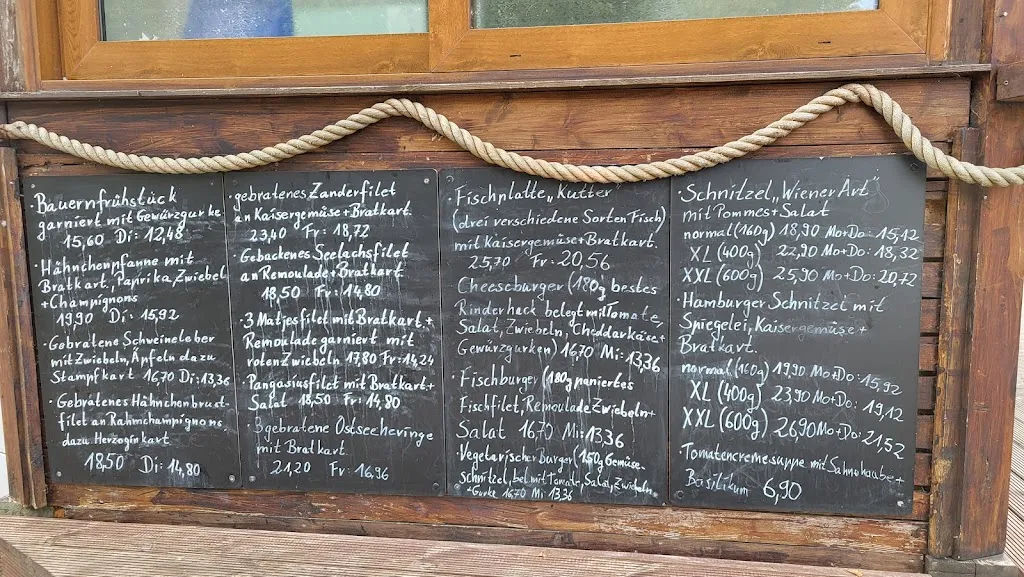 Bauernfrühstück
garniert mit Gewürzgurke
15,60 Di: 12,48
·Hähnchenpfanne mit
Bratkart., Paprika, Zwiebel
+Champignons
19,90 Di: 15,92
·Gebratene Schweineleber
mit Zwiebeln, Äpfeln dazu
Stampfkart 16,70 Di: 13,36
·Gebratenes Hähnchenbrust-
filet an Rahmchampignons,
dazu Herzoginkart
18,50 Di: 14,80
gebratenes Zanderfilet
an Kaisergemüse+Bratkart.
23,40 Fr: 18,72
·Gebackenes Seelachsfilet
an Remoulade+Bratkart
18,50 Fr: 14,80
·3 Matjesfilet mit Bratkart.+
Remoulade garniert mit
roten Zwiebeln 17,80 Fr: 14,24
·Pangasiusfilet mit Bratkart+
Salat 18,50 Fr: 14,80
·3 gebratene Ostseeheringe
mit Bratkart.
21,20 Fr: 16,96
·Fischplatte „Kutter"
(drei verschiedene Sorten Fisch)
mit Kaisergemüse+Bratkart.
25,70 Fr: 20,56
Cheeseburger (180g bestes
Rinderhack belegt mit Tomate,
Salat, Zwiebeln, Cheddarkäse+
Gewürzgurken) 16,70 Mi: 13,36
Fischburger (180g paniertes
Fischfilet, Remoulade Zwiebeln+
Salat 16,70 Mi: 13,36
·Vegetarischer Burger (150g Gemüse-
Schnitzel, bel. mit Tomate, Salat, Zwiebeln
+Gurke 16,70 Mi 13,36
·Schnitzel „Wiener Art"
mit Pommes+Salat
normal (160g) 18,90 Mo+Do: 15,12
XL (400g) 22,90 Mo+Do: 18,32
XXL (600g) 25,90 Mo+Do: 20,72
·Hamburger Schnitzel mit
Spiegelei, Kaisergemüse+
Bratkart.
normal (160g) 19,90 Mo+Do: 15,92
XL (400g) 23,90 Mo+Do: 19,12
XXL (600g) 26,90 Mo+Do: 21,52
·Tomatencremesuppe mit Sahnehaube+
Basilikum 6,90